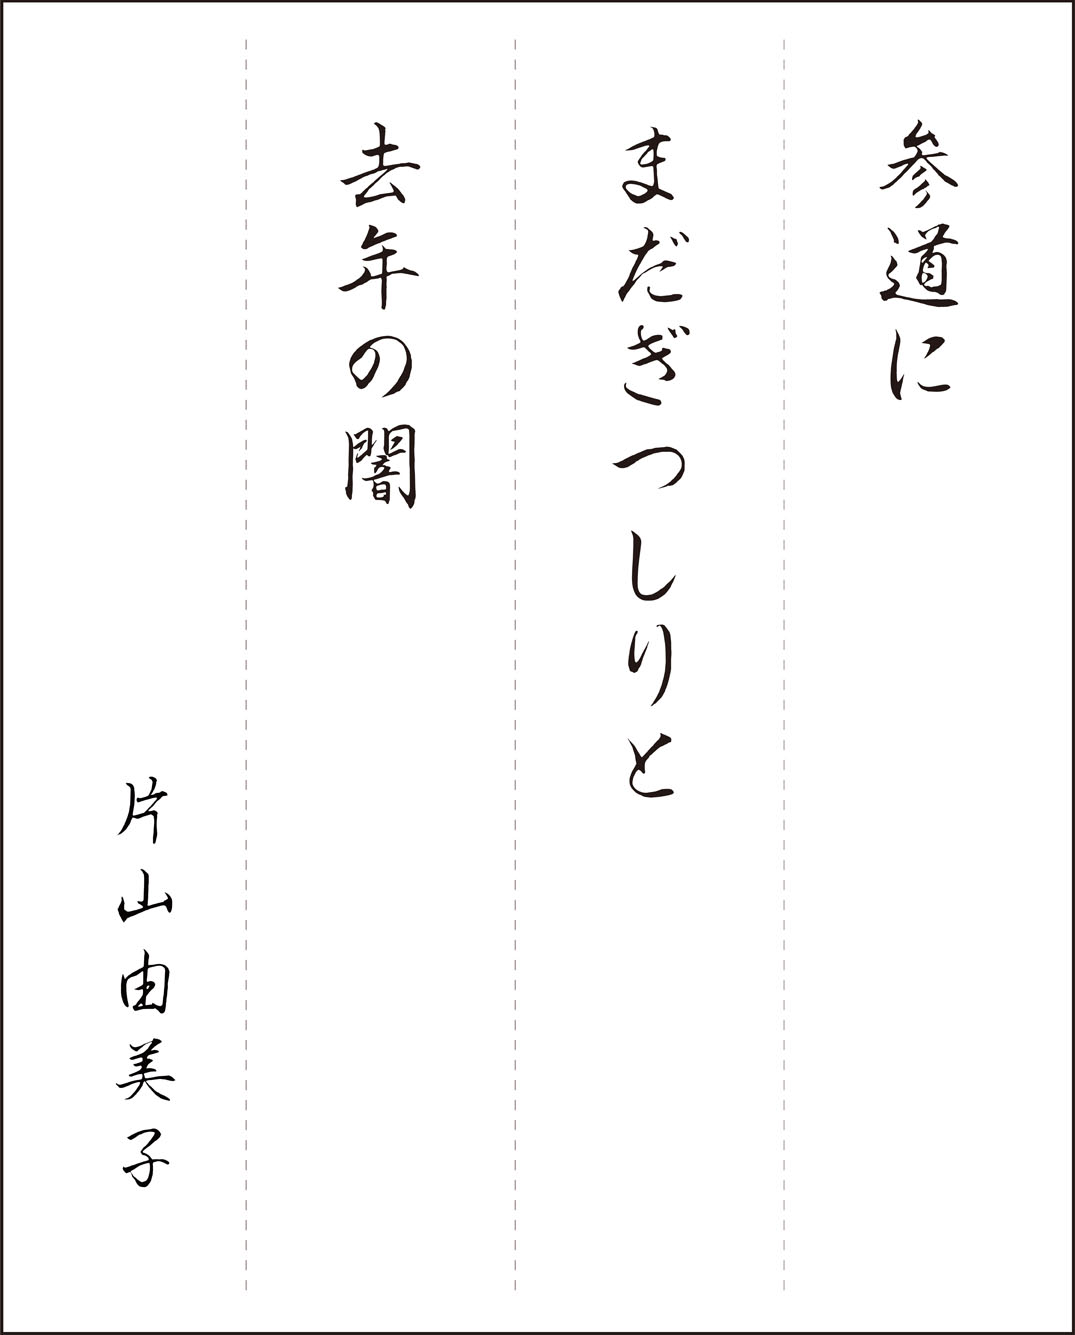 参道に
まだぎつしりと
去年の闇
片山由美子